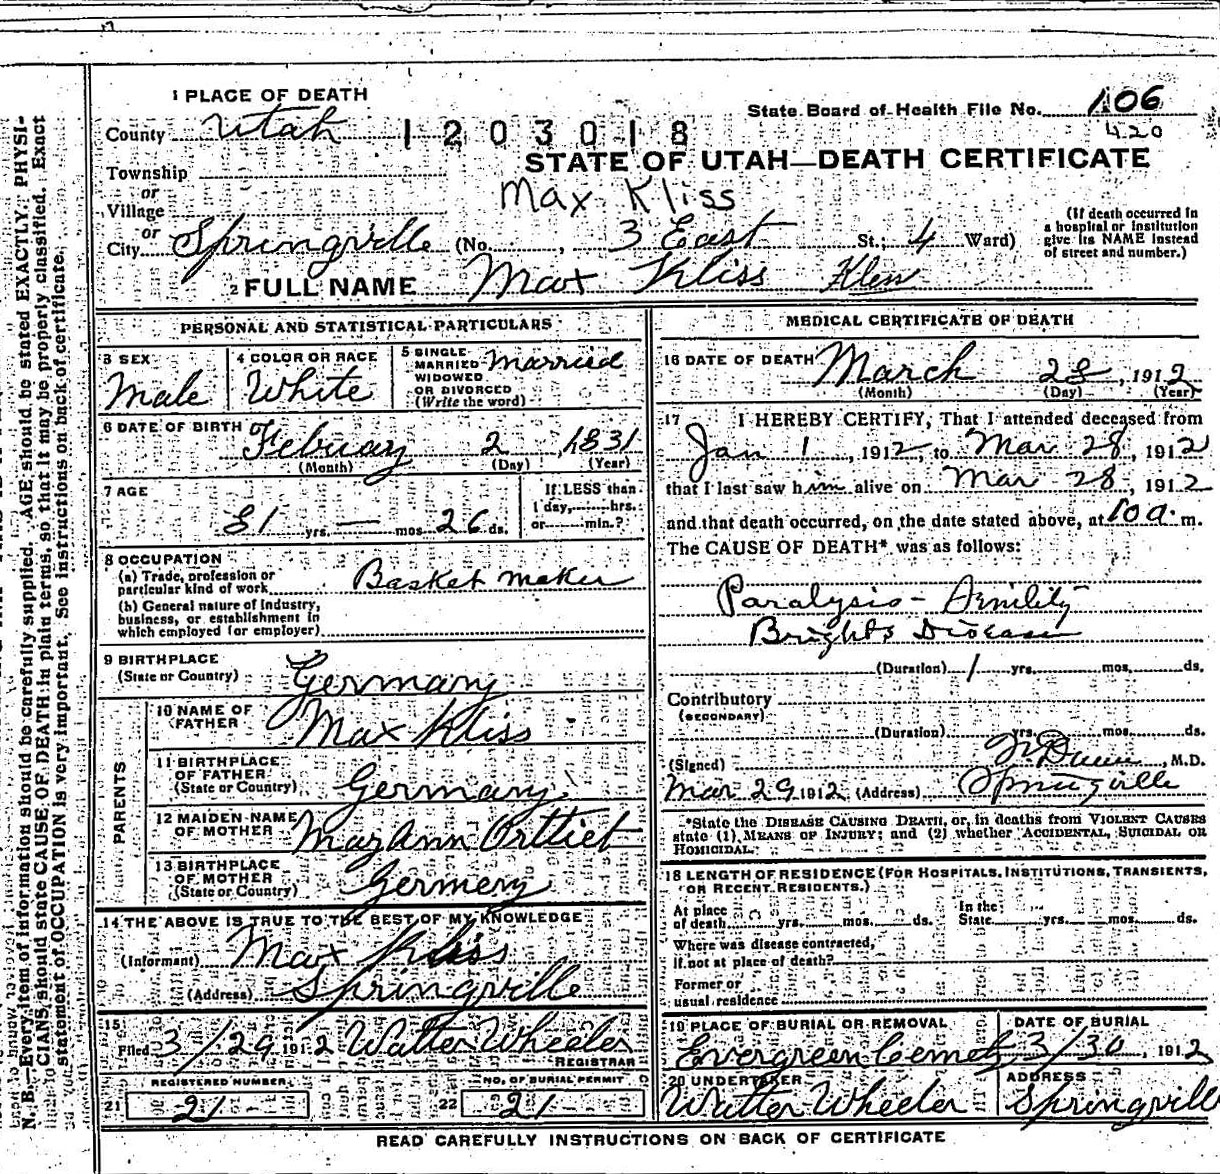 1 PLACE OF DEATH
State Board of Health File No. 106
County Utah 1203018 420
STATE OF UTAH—DEATH CERTIFICATE
Township
or
Max Kliss
Village
or
City Springville (No. , 3 East St.; 4 Ward)
(If death occurred in a hospital or institution give its NAME instead of street and number.)
2 FULL NAME Max Kliss
PERSONAL AND STATISTICAL PARTICULARS
3 SEX
Male
4 COLOR OR RACE
White
5 SINGLE
MARRIED
WIDOWED
OR DIVORCED
(Write the word)
Married
6 DATE OF BIRTH
February 2, 1831
(Month) (Day) (Year)
7 AGE
81 yrs. — mos. 26 ds.
If LESS than
1 day, hrs.
or min.?
8 OCCUPATION
(a) Trade, profession or
particular kind of work Basket maker
(b) General nature of Industry,
business, or establishment in
which employed (or employer)
9 BIRTHPLACE
(State or Country) Germany
PARENTS
10 NAME OF
FATHER Max Kliss
11 BIRTHPLACE
OF FATHER
(State or Country) Germany
12 MAIDEN NAME
OF MOTHER MaryAnn Orttiet
13 BIRTHPLACE
OF MOTHER
(State or Country) Germeny
14 THE ABOVE IS TRUE TO THE BEST OF MY KNOWLEDGE
(Informant) Max Kliss
(Address) Springville
15
Filed 3/29 1912 Walter Wheeler
REGISTRAR
REGISTERED NUMBER
21 21
NO. OF BURIAL PERMIT
22 21
MEDICAL CERTIFICATE OF DEATH
16 DATE OF DEATH
March 28, 1912
(Month) (Day) (Year)
17 I HEREBY CERTIFY, That I attended deceased from
Jan 1, 1912, to Mar 28, 1912
that I last saw him alive on Mar 28, 1912
and that death occurred, on the date stated above, at 10 a. m.
The CAUSE OF DEATH* was as follows:
Paralysis - Senility
Brights Disease
(Duration) 1 yrs. mos. ds.
Contributory
(SECONDARY)
(Duration) yrs. mos. ds.
(Signed) Dunn, M.D.
Mar 29 1912 (Address) Springville
*State the DISEASE CAUSING DEATH, or, in deaths from VIOLENT CAUSES
state (1) MEANS OF INJURY; and (2) whether ACCIDENTAL, SUICIDAL OR
HOMICIDAL.
18 LENGTH OF RESIDENCE (FOR HOSPITALS, INSTITUTIONS, TRANSIENTS,
OR RECENT RESIDENTS.)
At place
of death yrs. mos. ds.
In the
State yrs. mos. ds.
Where was disease contracted,
if not at place of death?
Former or
usual residence
19 PLACE OF BURIAL OR REMOVAL
Evergreen Cemety
DATE OF BURIAL
3/30, 1912
20 UNDERTAKER
Walter Wheeler
ADDRESS
Springville
READ CAREFULLY INSTRUCTIONS ON BACK OF CERTIFICATE
N. B.—Every item of information should be carefully supplied. AGE should be stated EXACTLY. PHYSI-
CIANS should state CAUSE OF DEATH in plain terms, so that it may be properly classified. Exact
statement of OCCUPATION is very important. See instructions on back of certificate.